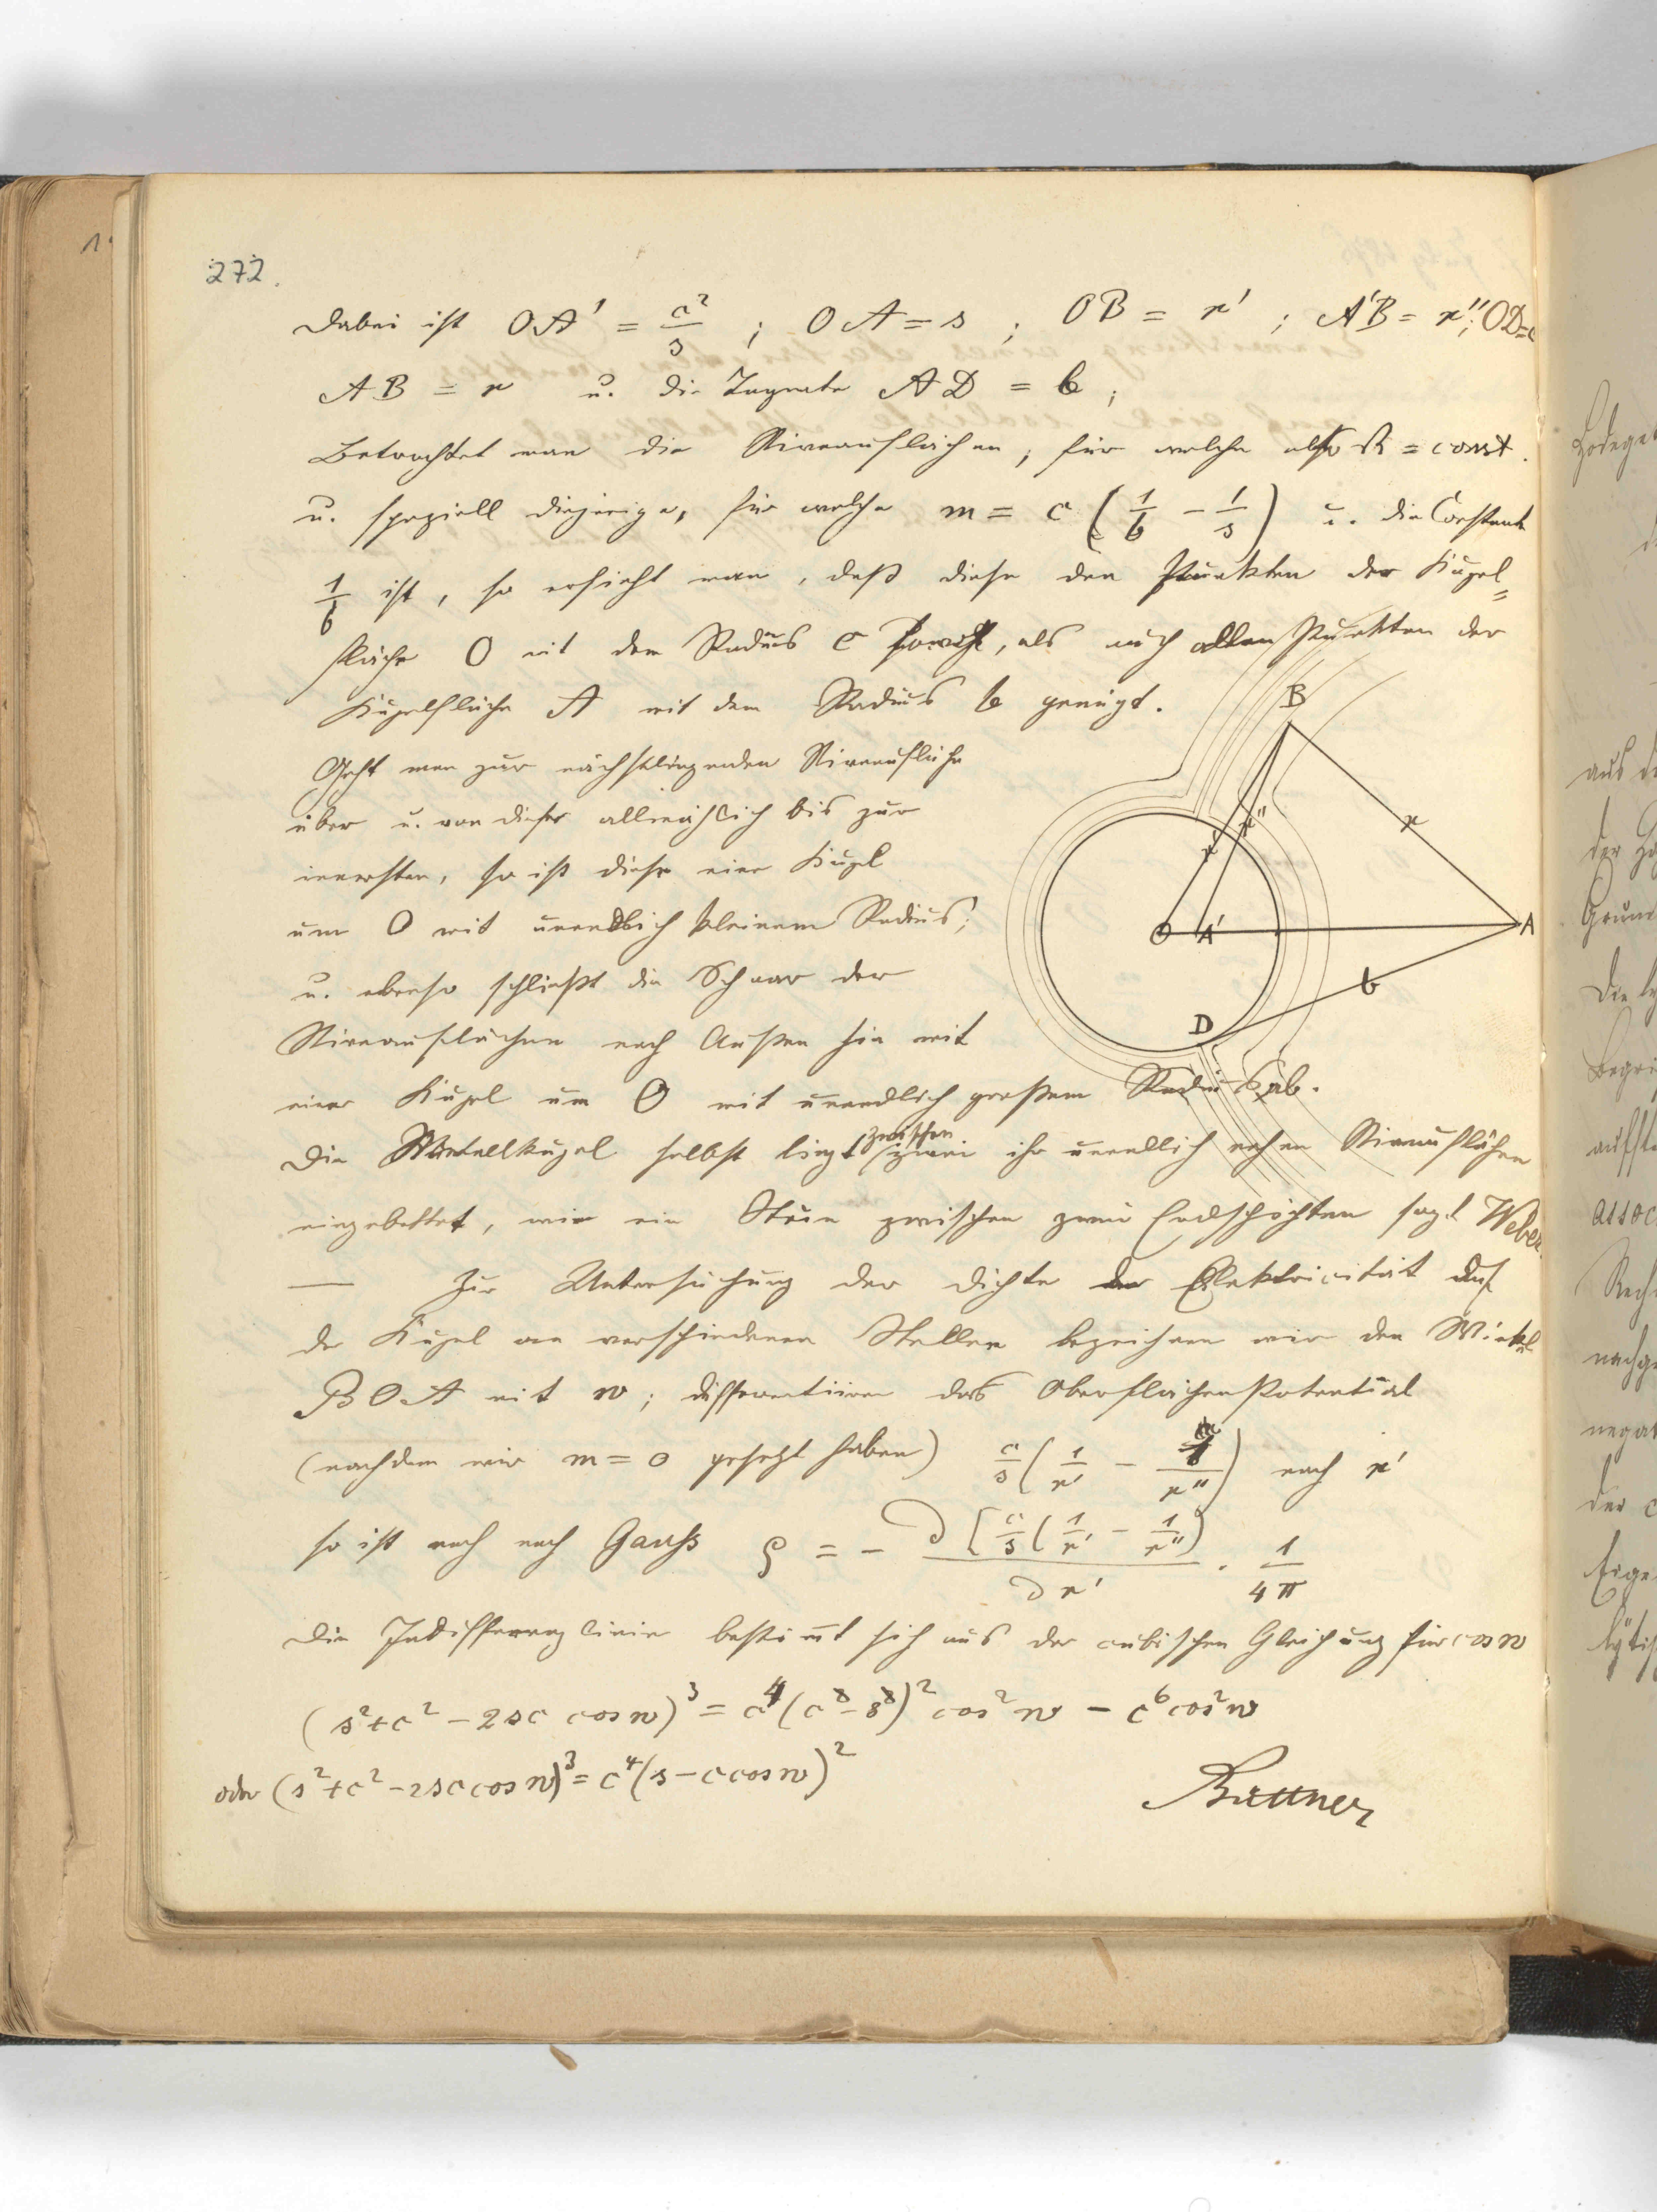 272.
Dabei ist OA' = c²/s ; OA = s ; OB = r' ; A'B = r''; OD=c
AB = r u. die Tangente AD = b ;
Betrachtet man die Niveauflächen, für welche also = const.
u. speziell diejenige, für welche m = c (1/b − 1/s) u. die Constante
1/b ist, so ersieht man, daß diese den Punkten der Kugel=
fläche O mit dem Radius c sowohl, als auch allen Punkten der
Kugelfläche A mit dem Radius b genügt.
Geht man zur nächstliegenden Niveaufläche
über u. von dieser allmählich bis zur
innersten, so ist diese eine Kugel
um O mit unendlich kleinem Radius;
u. ebenso schließt die Schaar der
Niveauflächen nach Außen hin mit
einer Kugel um O mit unendlich großem Radius ab.
Die Metallkugel selbst liegt zwischen zwei ihr unendlich nahen Niveauflächen
eingebettet, wie ein Stein zwischen zwei Erdschichten sagt Weber.
— Zur Untersuchung der Dichte der Elektricität auf
der Kugel an verschiedenen Stellen bezeichnen wir den Winkel
BOA mit w ; differentiiren das Oberflächenpotential
(nachdem wir m = o gesetzt haben) c/s (1/r' − /r'') nach r'
so ist nach Gauss ρ = − ∂ [c/s (1/r' − 1/r'')] / ∂r' · 1/4π
Die Indifferenzlinie bestimmt sich aus der cubischen Gleichung für cos w
(s²+c² − 2sc cos w)³ = c⁴ cos²w − c⁶cos²w
oder (s²+c²−2sc cos w)³ = c⁴(s−c cos w)²
Büttner
B
r
r'
r''
O
A'
A
b
D